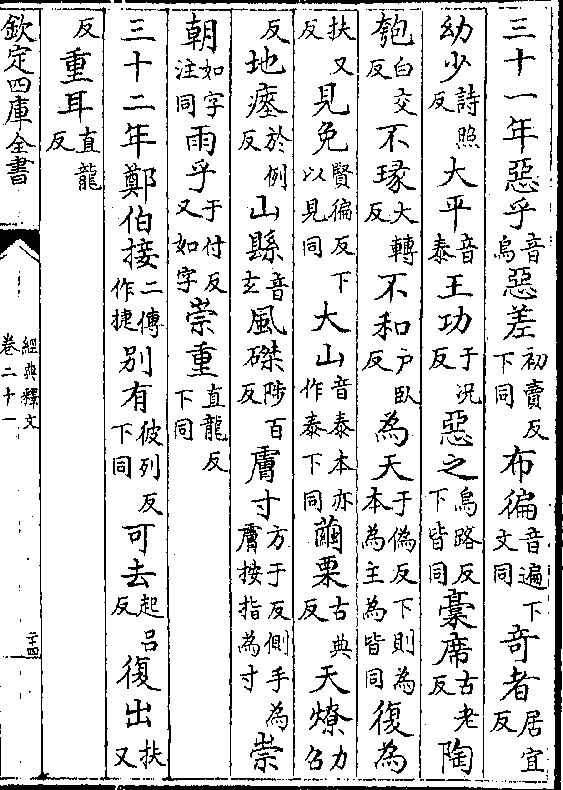 三十一年惡乎音烏惡差初賣反下同布徧音遍下文同竒者居宜反
幼少詩照反大平音泰王功于況反惡之烏路反下皆同稾席古老反陶
匏白交反不瑑大轉反不和户臥反為天于偽反下則為本為主為皆同復為
扶又反見免賢徧反下以見同大山音泰本亦作泰下同繭栗古典反天燎力召
反地瘞於例反山縣音玄風磔陟百反膚寸方于反側手為膚按指為寸崇
朝如字注同雨乎于付反又如字崇重直龍反下同
三十二年鄭伯接二傳作捷別有彼列反下同可去起吕反復出扶又
反重耳直龍反
欽定四庫全書
經典釋文
卷二十一
二十四